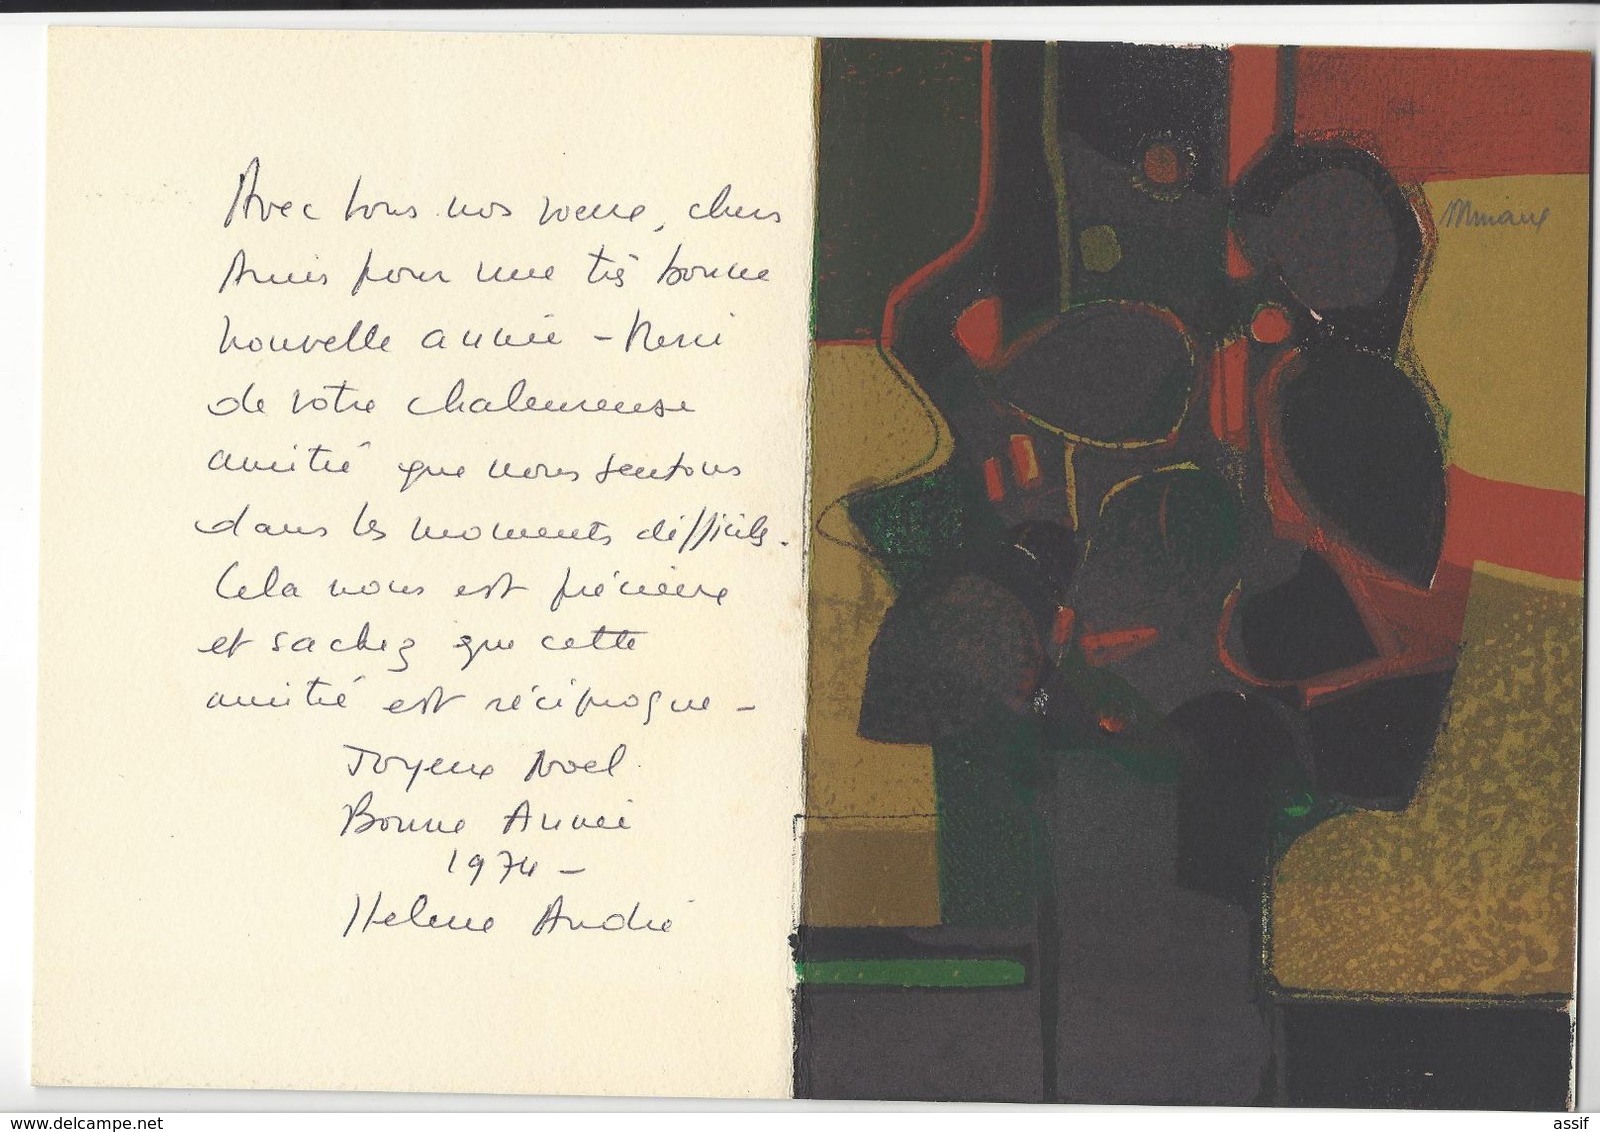 Avec tous nos voeux, chers
Amis pour une très bonne
nouvelle année - Merci
de votre chaleureuse
amitié que nous sentons
dans les moments difficiles.
Cela nous est précieux
et sachez que cette
amitié est réciproque -
Joyeux Noel
Bonne Année
1974 -
Helene André
Minaux
www.delcampe.net
assif